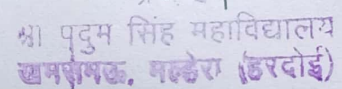 श्री पदुम सिंह महाविद्यालय
मल्हेरा (हरदोई)